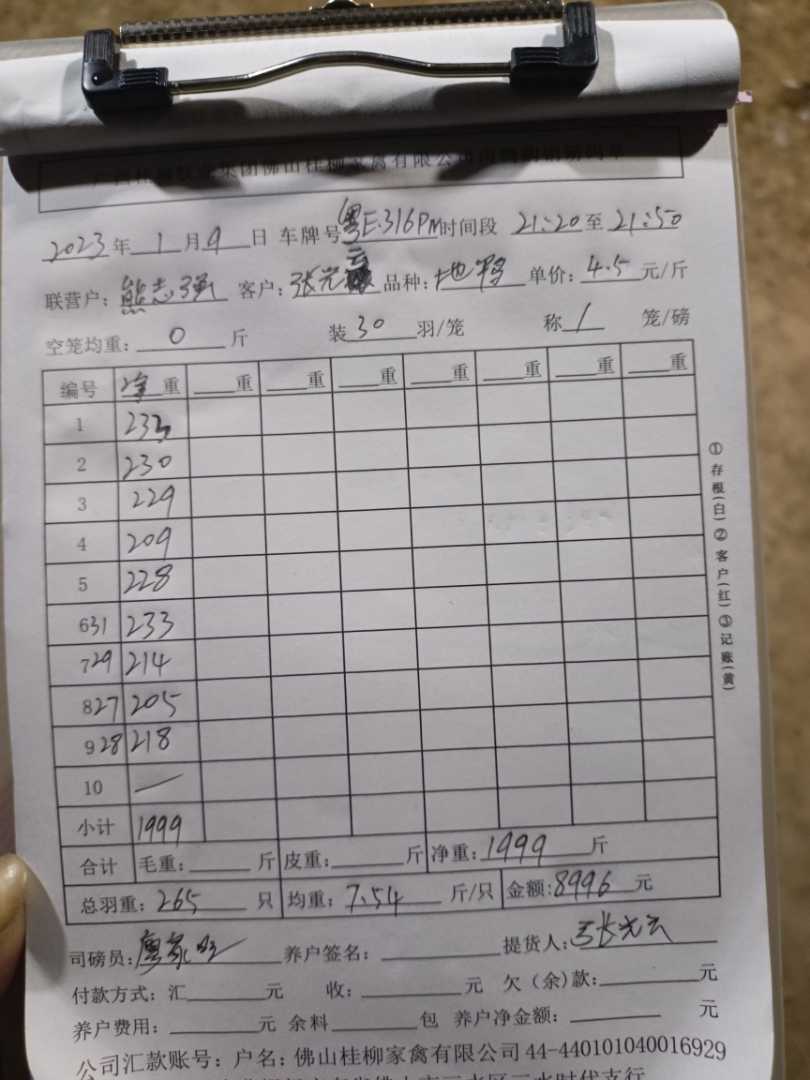 集团佛山桂柳家禽有限公司
2023年1月9日 车牌号粤E.316PM时间段 21:20至21:50
联营户:熊志强 客户:张光云 品种:地鸭 单价:4.5元/斤
空笼均重:0斤 装30羽/笼 称1笼/磅
编号 净重 重 重 重 重 重 重 重
1 233
2 230
3 229
4 209
5 228
6 31 233
7 29 214
8 27 205
9 28 218
10 —
小计 1999
合计 毛重: 斤 皮重: 斤 净重:1999斤
总羽重:265只 均重:7.54斤/只 金额:8996元
司磅员:廖家旺 养户签名: 提货人:张光云
付款方式:汇 元 收: 元 欠(余)款: 元
养户费用: 元 余料 包 养户净金额: 元
公司汇款账号:户名:佛山桂柳家禽有限公司44-440101040016929
①存根(白)②客户(红)③记账(黄)